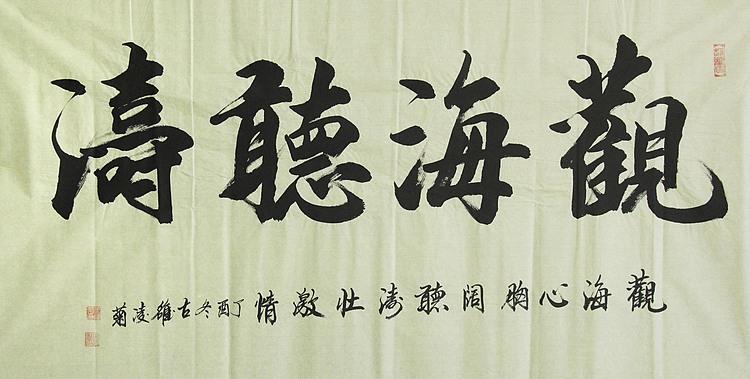 觀海聽濤
觀海心胸闊聽濤壯激情丁酉冬古雒凌菊